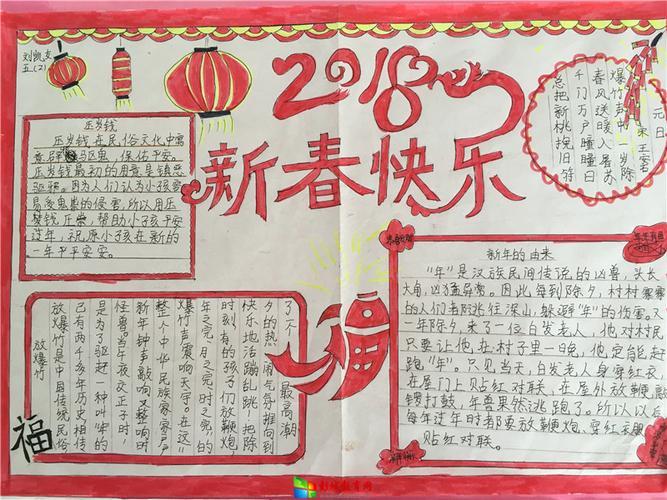 刘凯
五(2)
2018
新春快乐
压岁钱
压岁钱在民俗文化中寓
驱鬼,保佑平安。
压岁钱最初的用意是镇恶
驱邪。因为人们认为小孩容
易受鬼祟的侵害,所以用压
岁钱压祟,帮助小孩子平安
过年,祝原小孩在新的
一年中平平安安。
元日
宋 王安
爆竹声中一岁除
春风送暖入苏
千门万户瞳瞳日
总把新桃挽旧符
放爆竹
放爆竹是中国传统民俗
已有两千多年历史相传
是为了驱赶一种叫“年”的
怪兽。当午夜交正子时,
新年钟声敲响又整响时
整个中华民族家家户
爆竹声震响天宇。在这“
年之元、月之元、时之元的
时刻有的孩子们放鞭炮,
快乐地活蹦乱跳!把除
夕的热闹气氛推向到
了一个最高潮
福
福
新年的由来
“年”是汉族民间传说的凶兽,头长
大角,凶猛异常。因此每到除夕,村村寨寨
的人们都逃往深山,躲避“年”的伤害。又
一年除夕,来了一位白发老人,他对村民
只要让他在村子里一日晚,他定能赶
跑“年”。只见当天,白发老人身穿红衣
在屋门上贴红对联,在屋外放鞭
锣打鼓,年兽果然逃跑了。所以以后
每年过年时者都要放鞭炮、穿红衣服
贴红对联。
彩城教育网